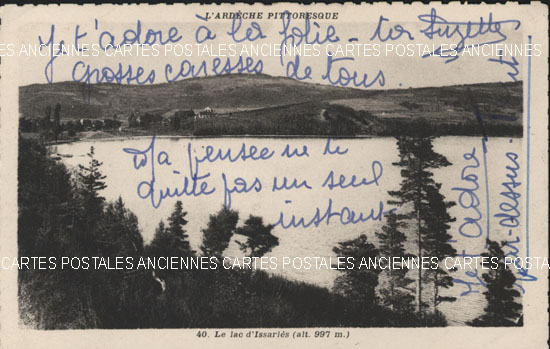 L'ARDÈCHE PITTORESQUE
Je t'adore à la folie - ton Suzette
Grosses caresses de tous.
CARTES POSTALES ANCIENNES CARTES POSTALES ANCIENNES CARTES POSTALES ANCIENNES
Ma pensée ne te
quitte pas un seul
instant
Je t'adore
par-dessus - tout
Je t'adore
CARTES POSTALES ANCIENNES CARTES POSTALES ANCIENNES CARTES POSTALES ANCIENNES
40. Le lac d'Issarlès (alt. 997 m.)